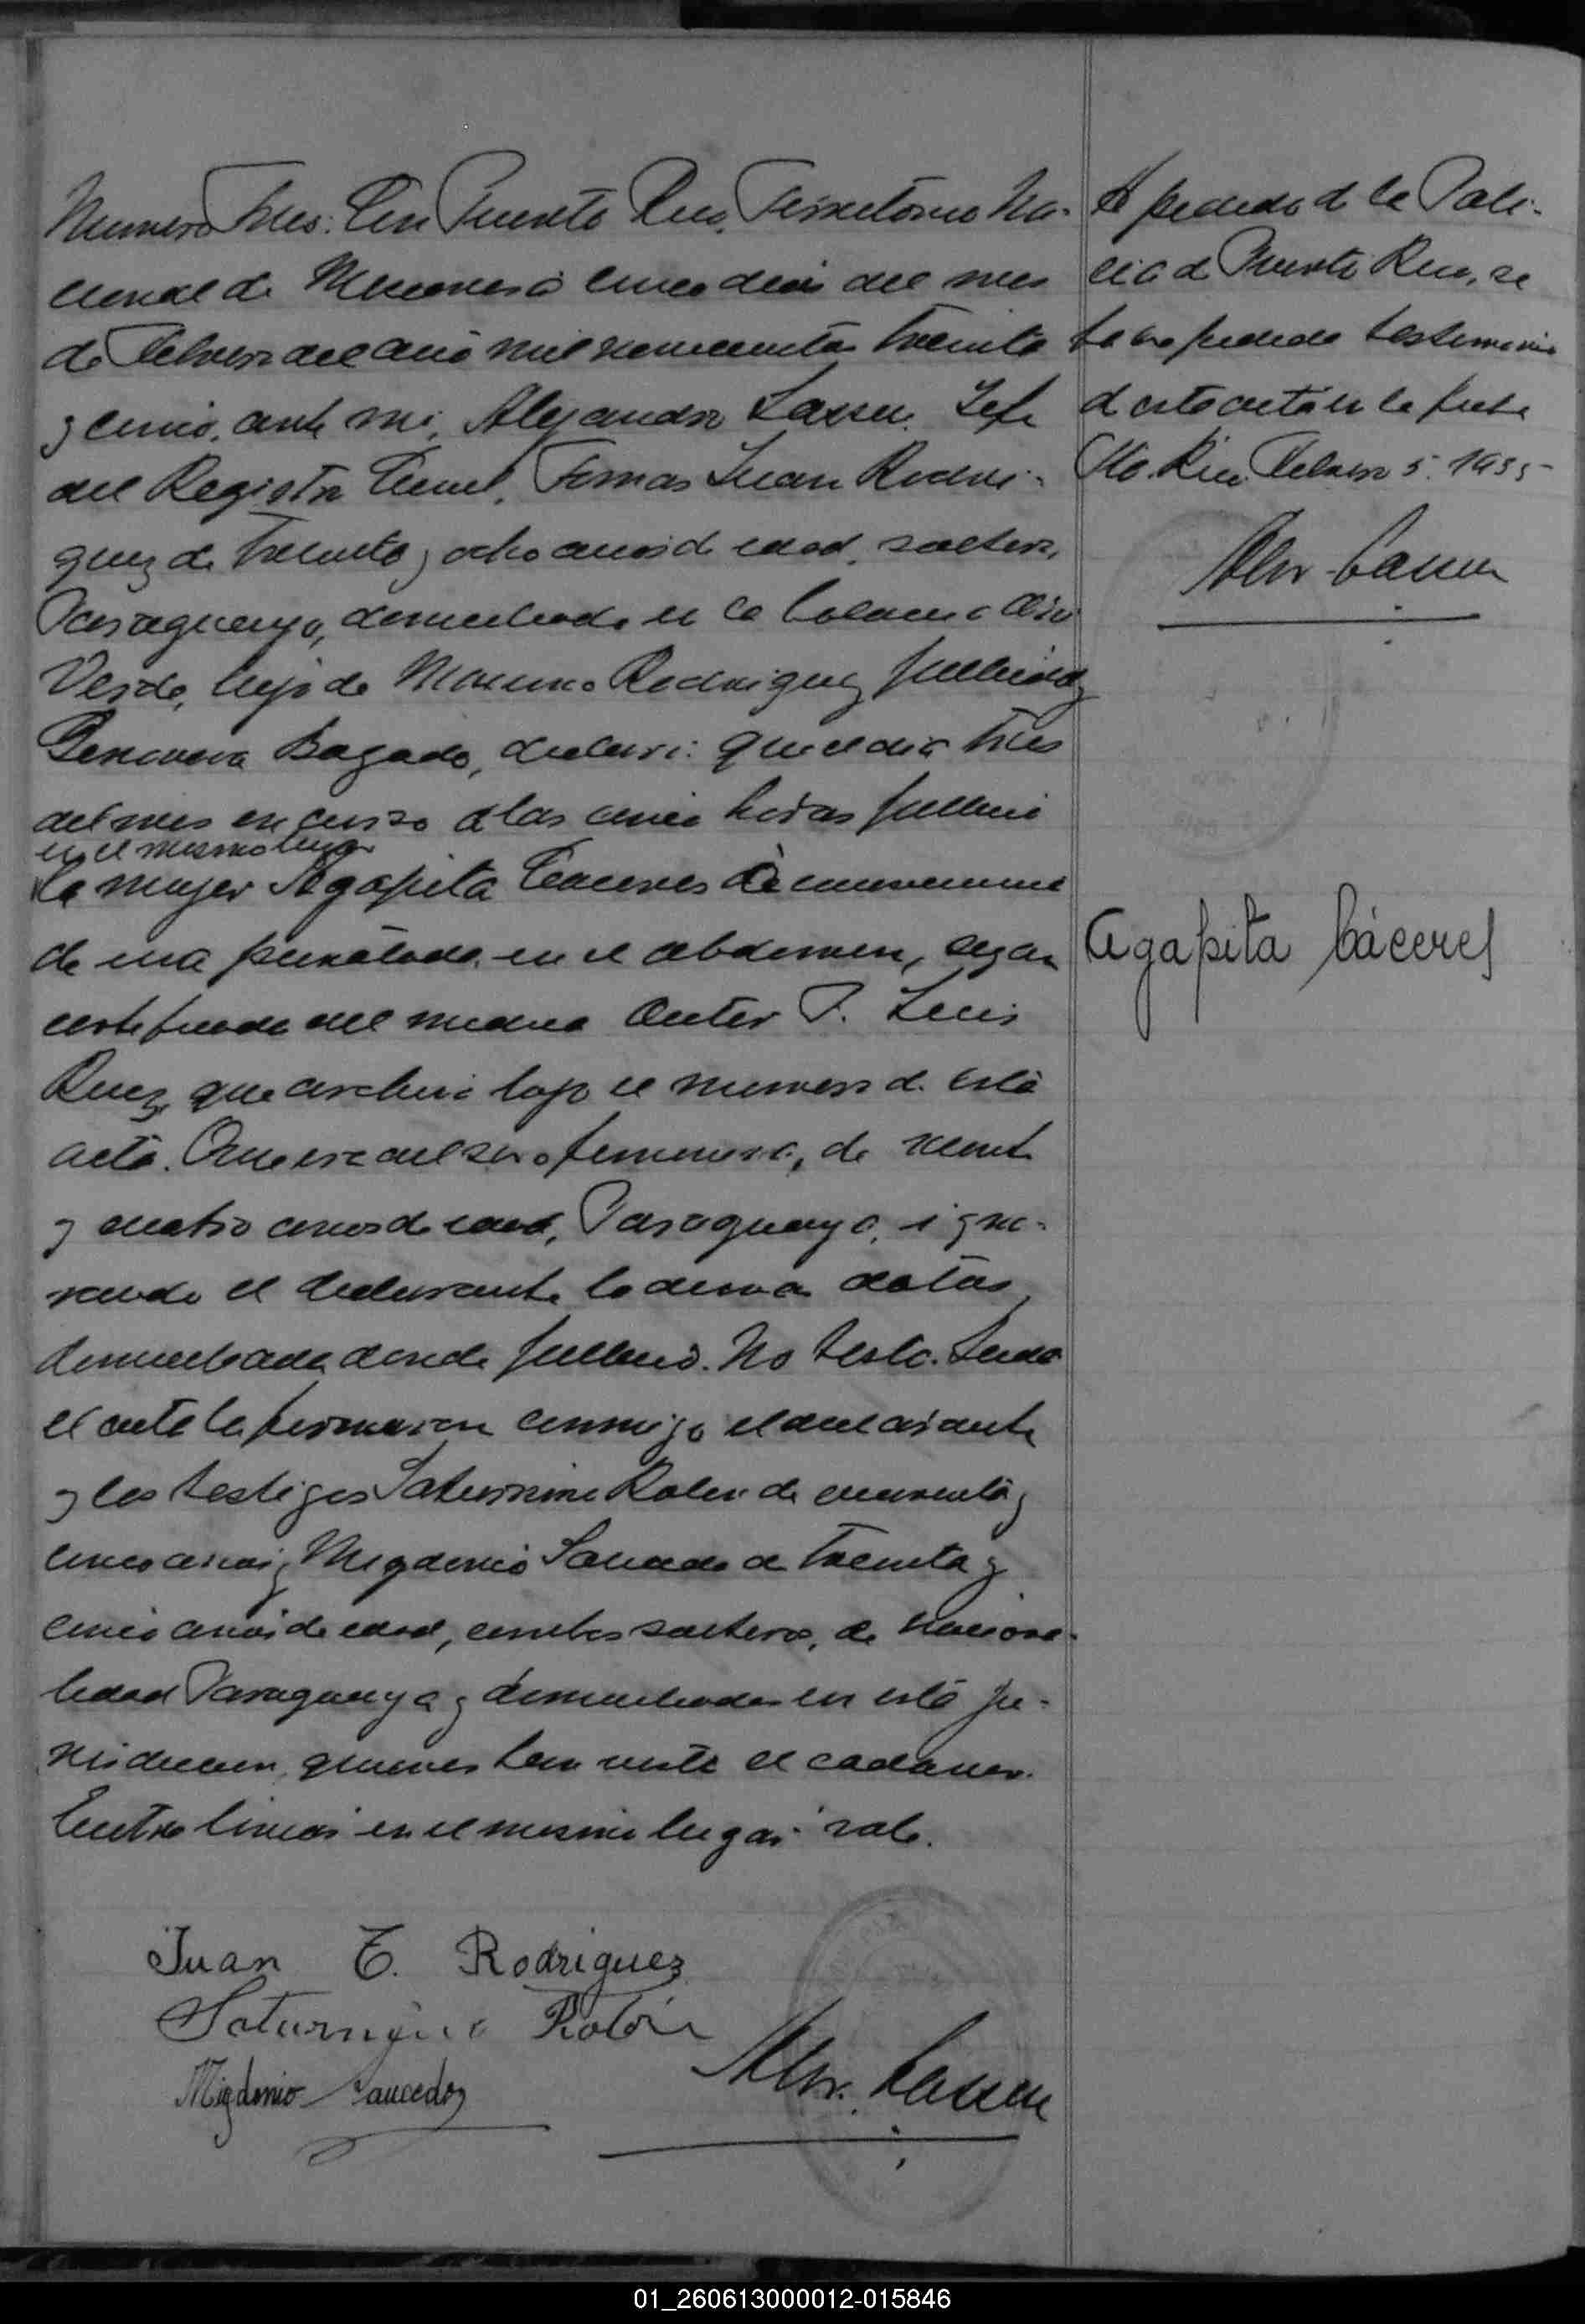 Numero Tres. En Puerto Rico, Territorio Na-
cional de Misiones á cinco dias del mes
de Febrero del año mil novecientos treinta
y cinco, ante mi, Alejandro Lassen, Jefe
del Registro Civil, Tomas Juan Rodri-
guez de treinta y ocho años de edad, soltero,
Paraguayo, domiciliado en la Colonia Oro
Verde, hijo de Rodriguez fallecido y
Genoveva Bogado, declaró: que el dia tres
del mes en curso a las cinco horas falleció
en el mismo lugar
la mujer Agapita Caceres á consecuencia
de una puñalada en el abdomen, segun
certificado del medico Doctor P. Luis
Ruiz, que archivo bajo el numero de esta
acta. Que era del sexo femenino, de veinte
y cuatro años de edad, Paraguaya, igno-
rando el declarante lo demas datos,
domiciliada donde falleció. No testó. Leida
el acta la firmaron conmigo el declarante
y los testigos Saturnino Rolon de cuarenta y
cinco años y Migdonio Saucedo de treinta y
cinco años de edad, ambos solteros, de naciona-
lidad Paraguaya y domiciliados en esta ju-
risdiccion, quienes han visto el cadaver.
Entre lineas en el mismo lugar vale.
Juan T. Rodriguez
Saturnino Rolón
Migdonio Saucedo
Alex. Lassen
A pedido de la Poli-
cia de Puerto Rico, se
ha expedido testimonio
de esta acta en la fecha
Pto. Rico Febrero 5. 1935
Alex. Lassen
Agapita Cáceres
01_260613000012-015846